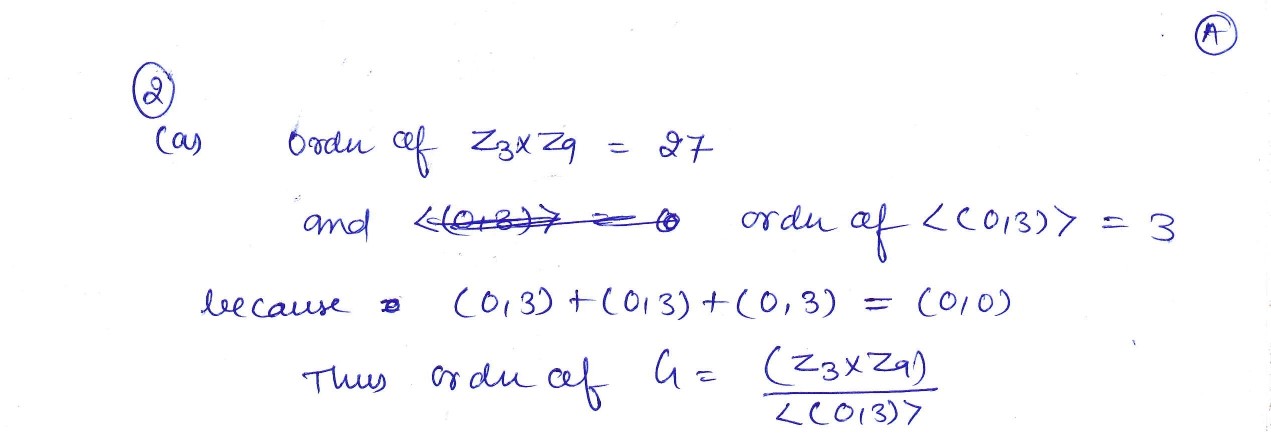 A
2
(a) Order of Z₃ x Z₉ = 27
and order of <(0,3)> = 3
because (0,3) + (0,3) + (0,3) = (0,0)
Thus order of G = (Z₃ x Z₉) / <(0,3)>